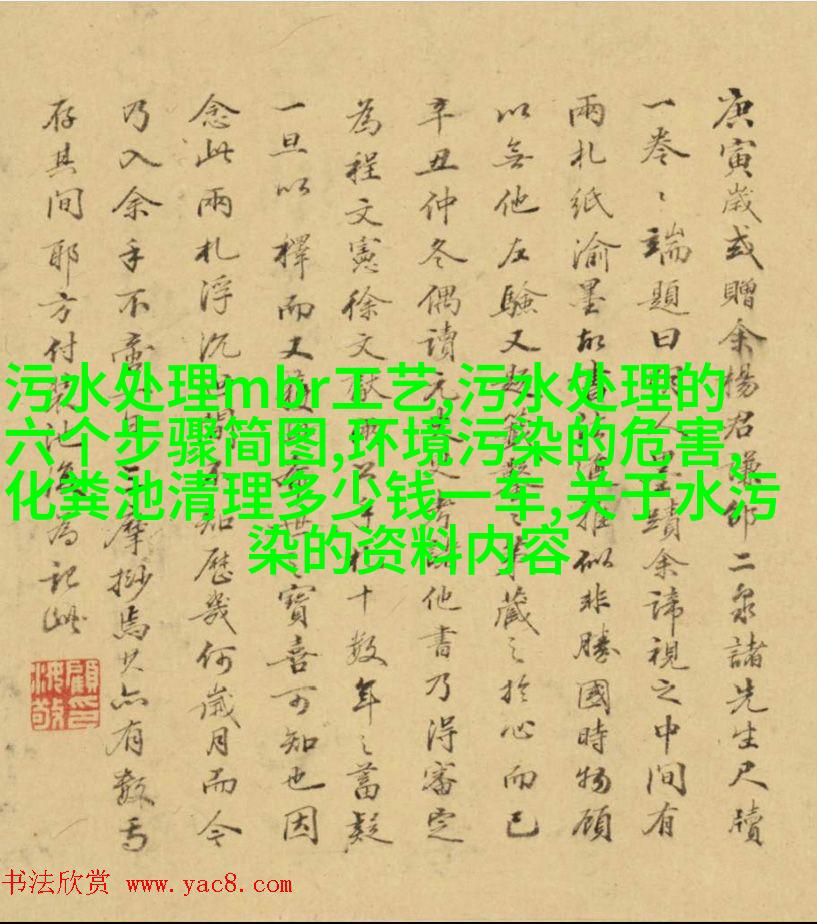 庚寅歲或贈余楊君謙邵二泉諸先生尺牘
一卷〻端題曰蹟余諦視之中間有
兩札紙渝墨故書推似非勝國時物顧
以無他左驗又藏〻於心而已
辛丑仲冬偶讀元他書乃得審定
為程文憲徐文十數年〻蓄疑
一旦以釋而又寶喜可知也因
念此兩札浮沉知歷幾何歲月而今
乃入余手不摩挲焉亦有數焉
存其間耶方付池為記此
污水处理mbr工艺,污水处理的
六个步骤简图,环境污染的危害,
化粪池清理多少钱一车,关于水污
染的资料内容
书法欣赏 www.yac8.com